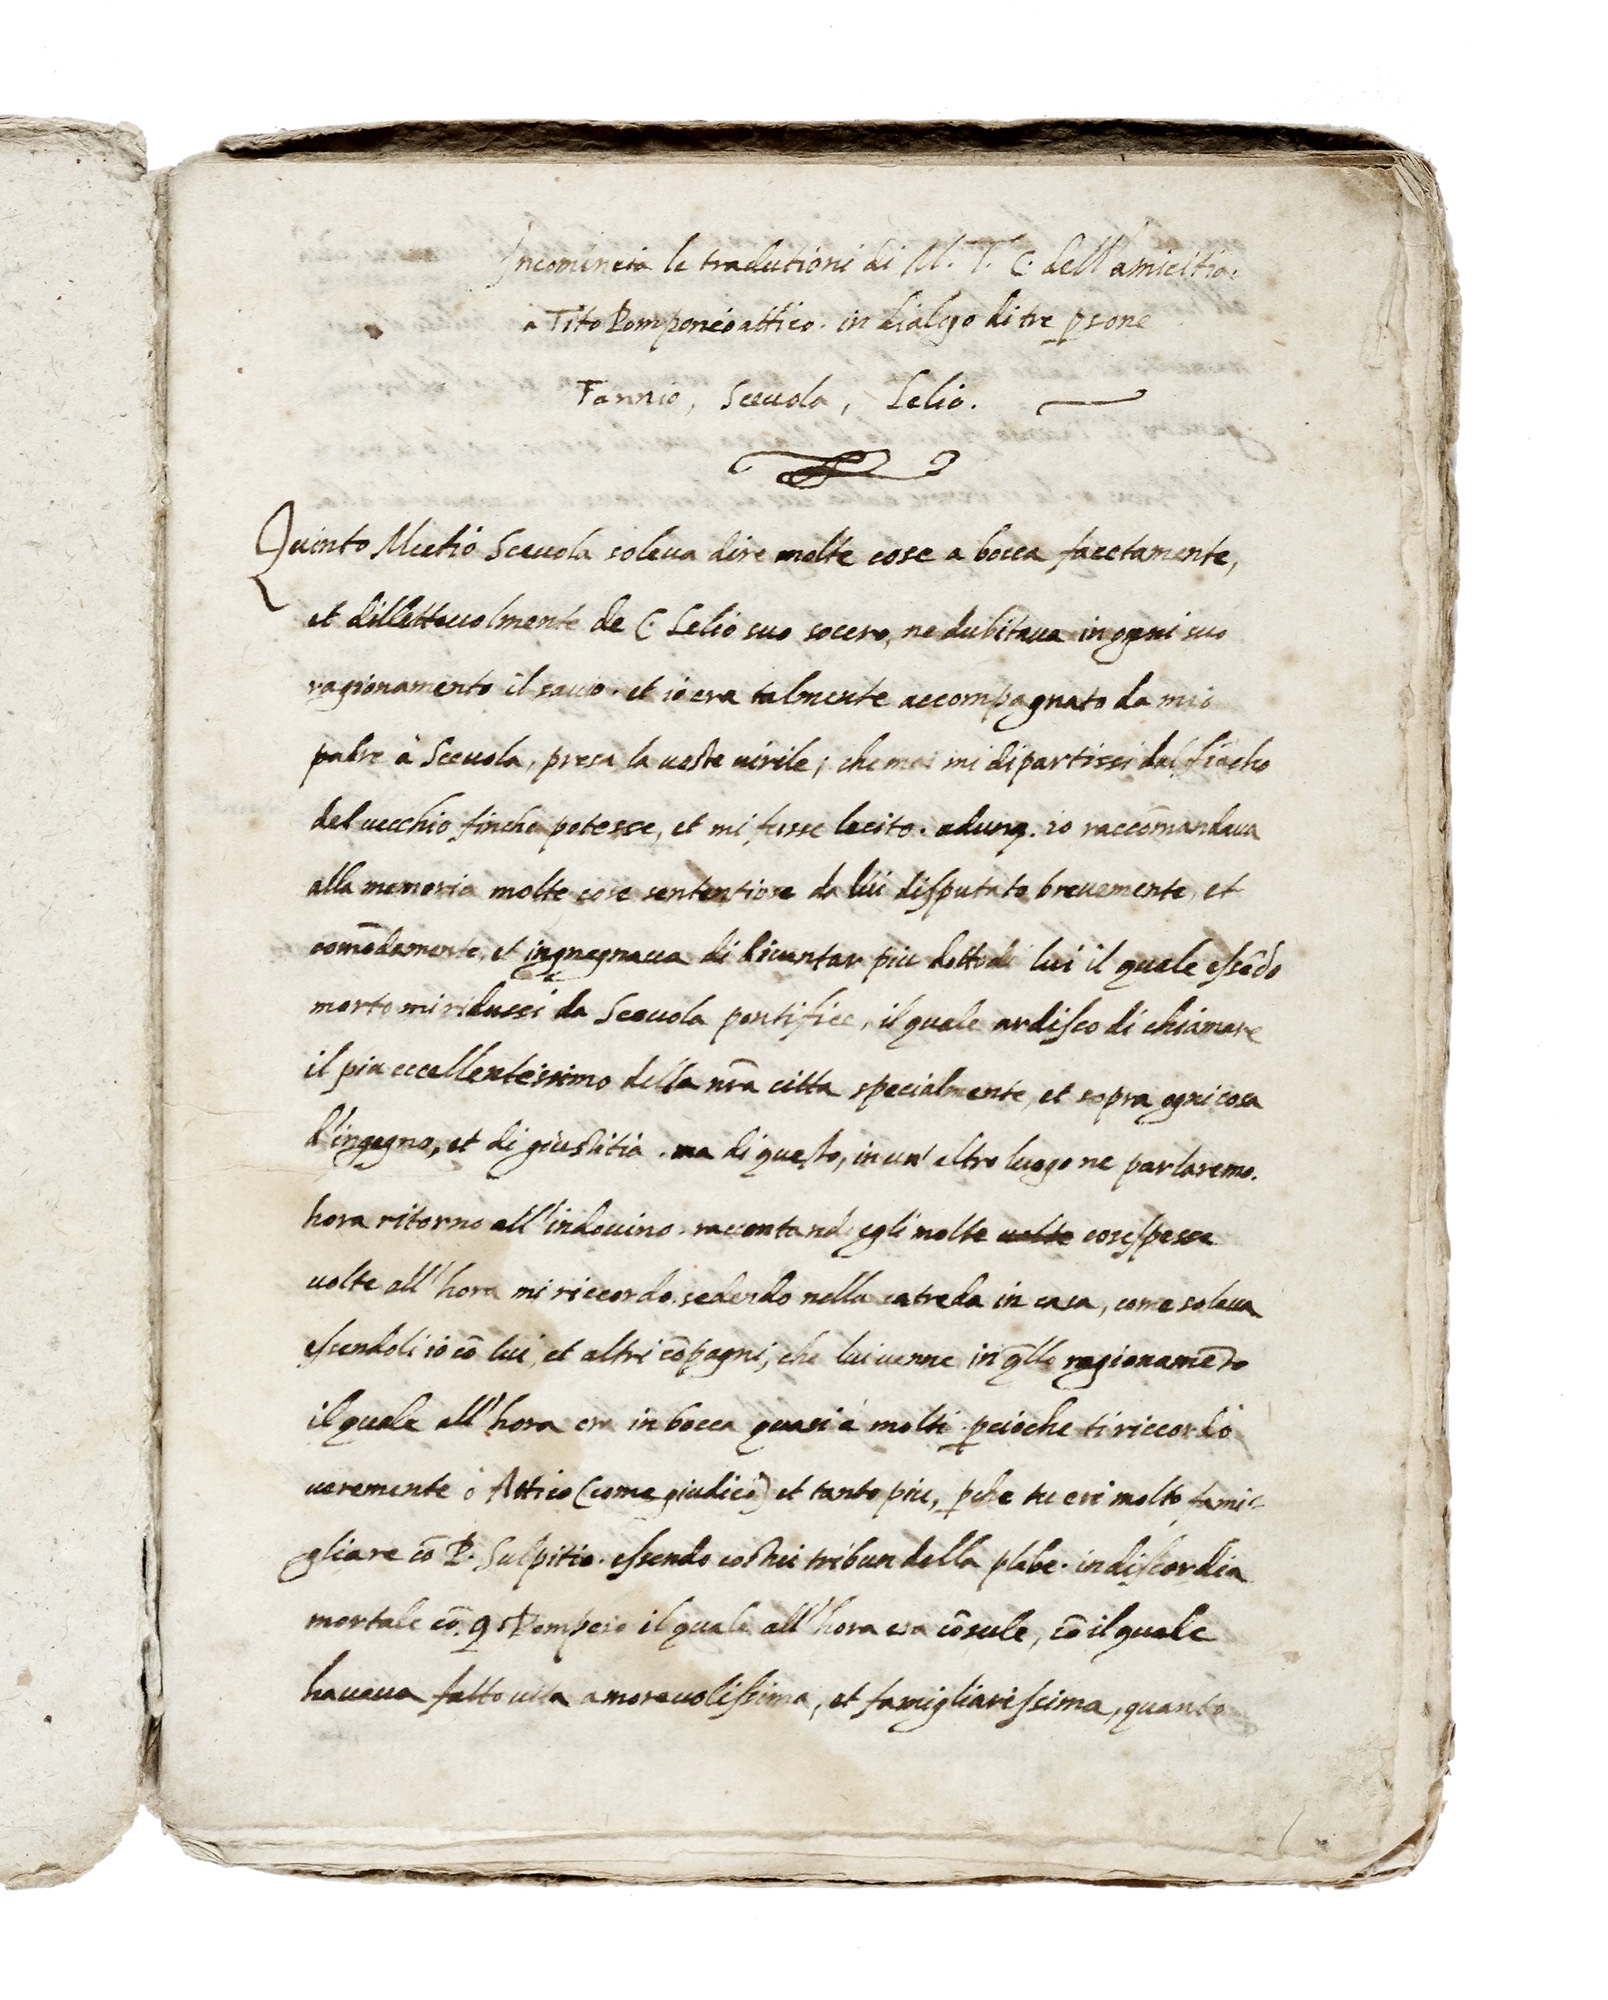 Incomincia le tradutioni di M. T. C. dell'amicitia.
a Tito Pomponio attico. in dialogo di tre p̱sone
Fannio, Sceuola, Lelio.
Quinto Mutio Sceuola soleua dire molte cose a bocca facetamente,
et dillettouolmente de C. Lelio suo socero, ne dubitaua in ogni suo
ragionamento il sauio. et io era talmente accompagnato da mio
padre à Sceuola, presa la ueste uirile; che mai mi dipartissi dal fiācho
del uecchio finche potesse, et mi fusse lecito. adunq. io raccōmandaua
alla memoria molte cose sententiose da lui disputate breuemente, et
comōdamente, et ingnegnaua di diuentar piu dotto di lui il quale essēdo
morto mi ridussi da Sceuola pontifice, il quale ardisco di chiamare
il piu eccellentissimo della nr̄a citta specialmente, et sopra ogni cosa
d'ingegno, et di giustitia. ma di questo, in un' altro luogo ne parlaremo.
hora ritorno all'indouino. raccontand egli molte uolte cose spesse
uolte all'hora mi riccordo. sedendo nella catreda in casa, come soleua
essendoli io cō lui, et altri cōpagni, che lui uenne in q̄llo ragionamēto
il quale all'hora era in bocca quasi à molti. p̱cioche ti riccordo
ueremente o Attico (come giudico) et tanto piu, p̱che tu eri molto fami-
gliare cō P. Sulpitio. essendo costui tribun della plebe. in discordia
mortale cō. Q Pompeio il quale all'hora era cōsule, cō il quale
haueua fatto uita amoreuolissima, et famigliarissima, quanto